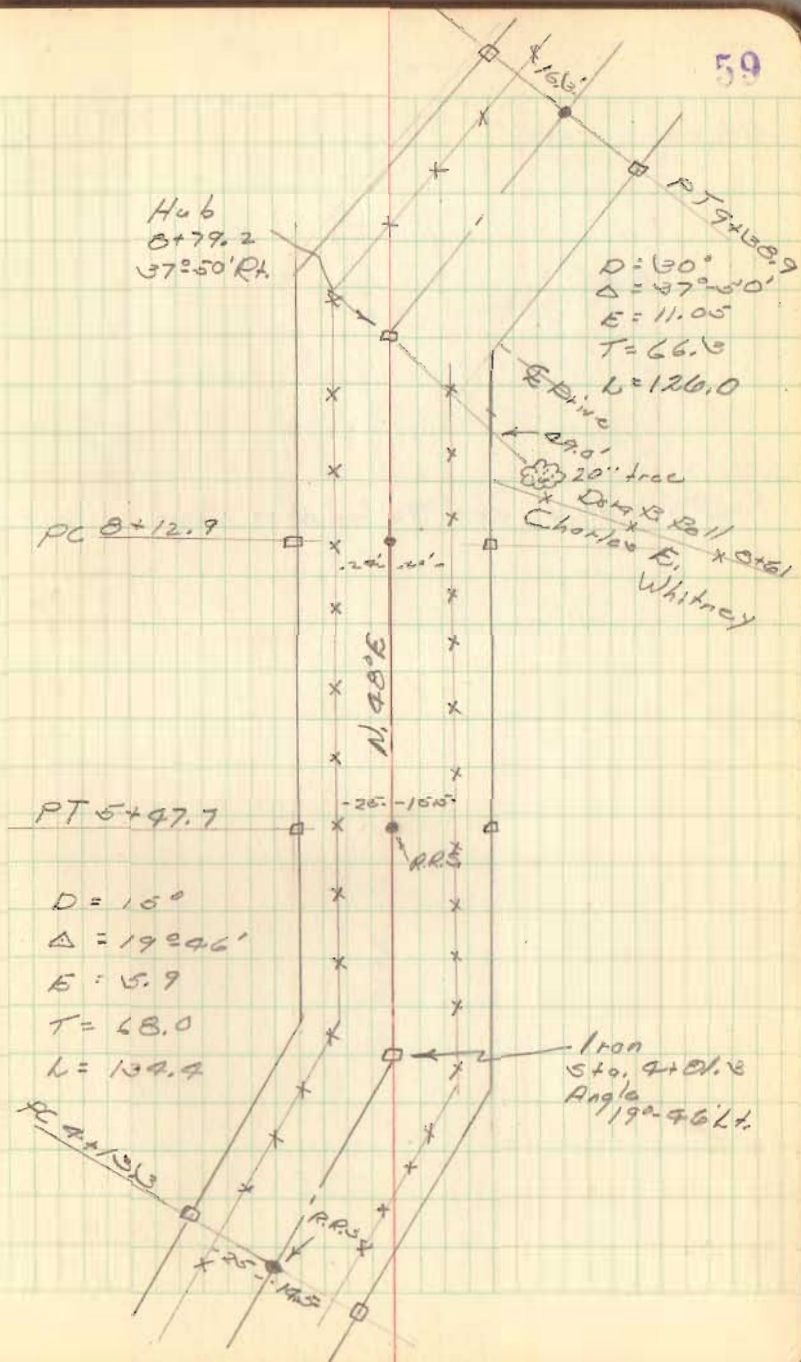 59
16.3'
PT 9+38.9
Hub
8+79.2
37°-50' Rt.
D = 30°
Δ = 37°-50'
E = 11.05
T = 66.3
L = 126.0
℄ Drive
49.0'
20" tree
Dora B Bell 8+61
Charles E.
Whitney
PC 8+12.9
N. 48°E
PT 5+47.7
-25- -15.5-
R.R.S.
D = 15°
Δ = 19°46'
E = 5.9
T = 68.0
L = 134.4
Iron
Sta. 4+81.3
Angle
19°-46' Lt.
PC 4+13.3
R.R.S.
-25- -14.5-